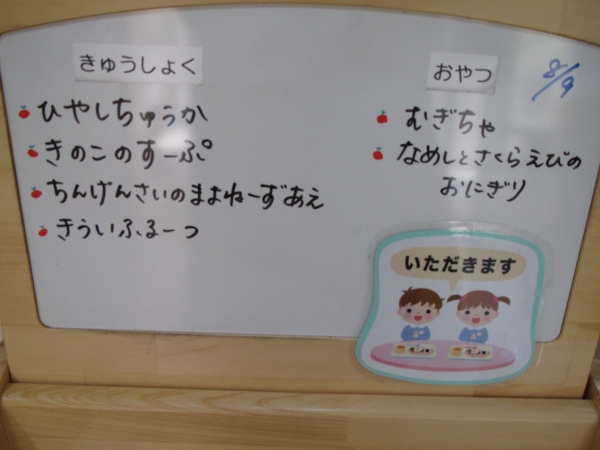 きゅうしょく
ひやしちゅうか
きのこのすーぷ
ちんげんさいのまよねーずあえ
きういふるーつ
おやつ
8/9
むぎちゃ
なめしとさくらえびの
おにぎり
いただきます